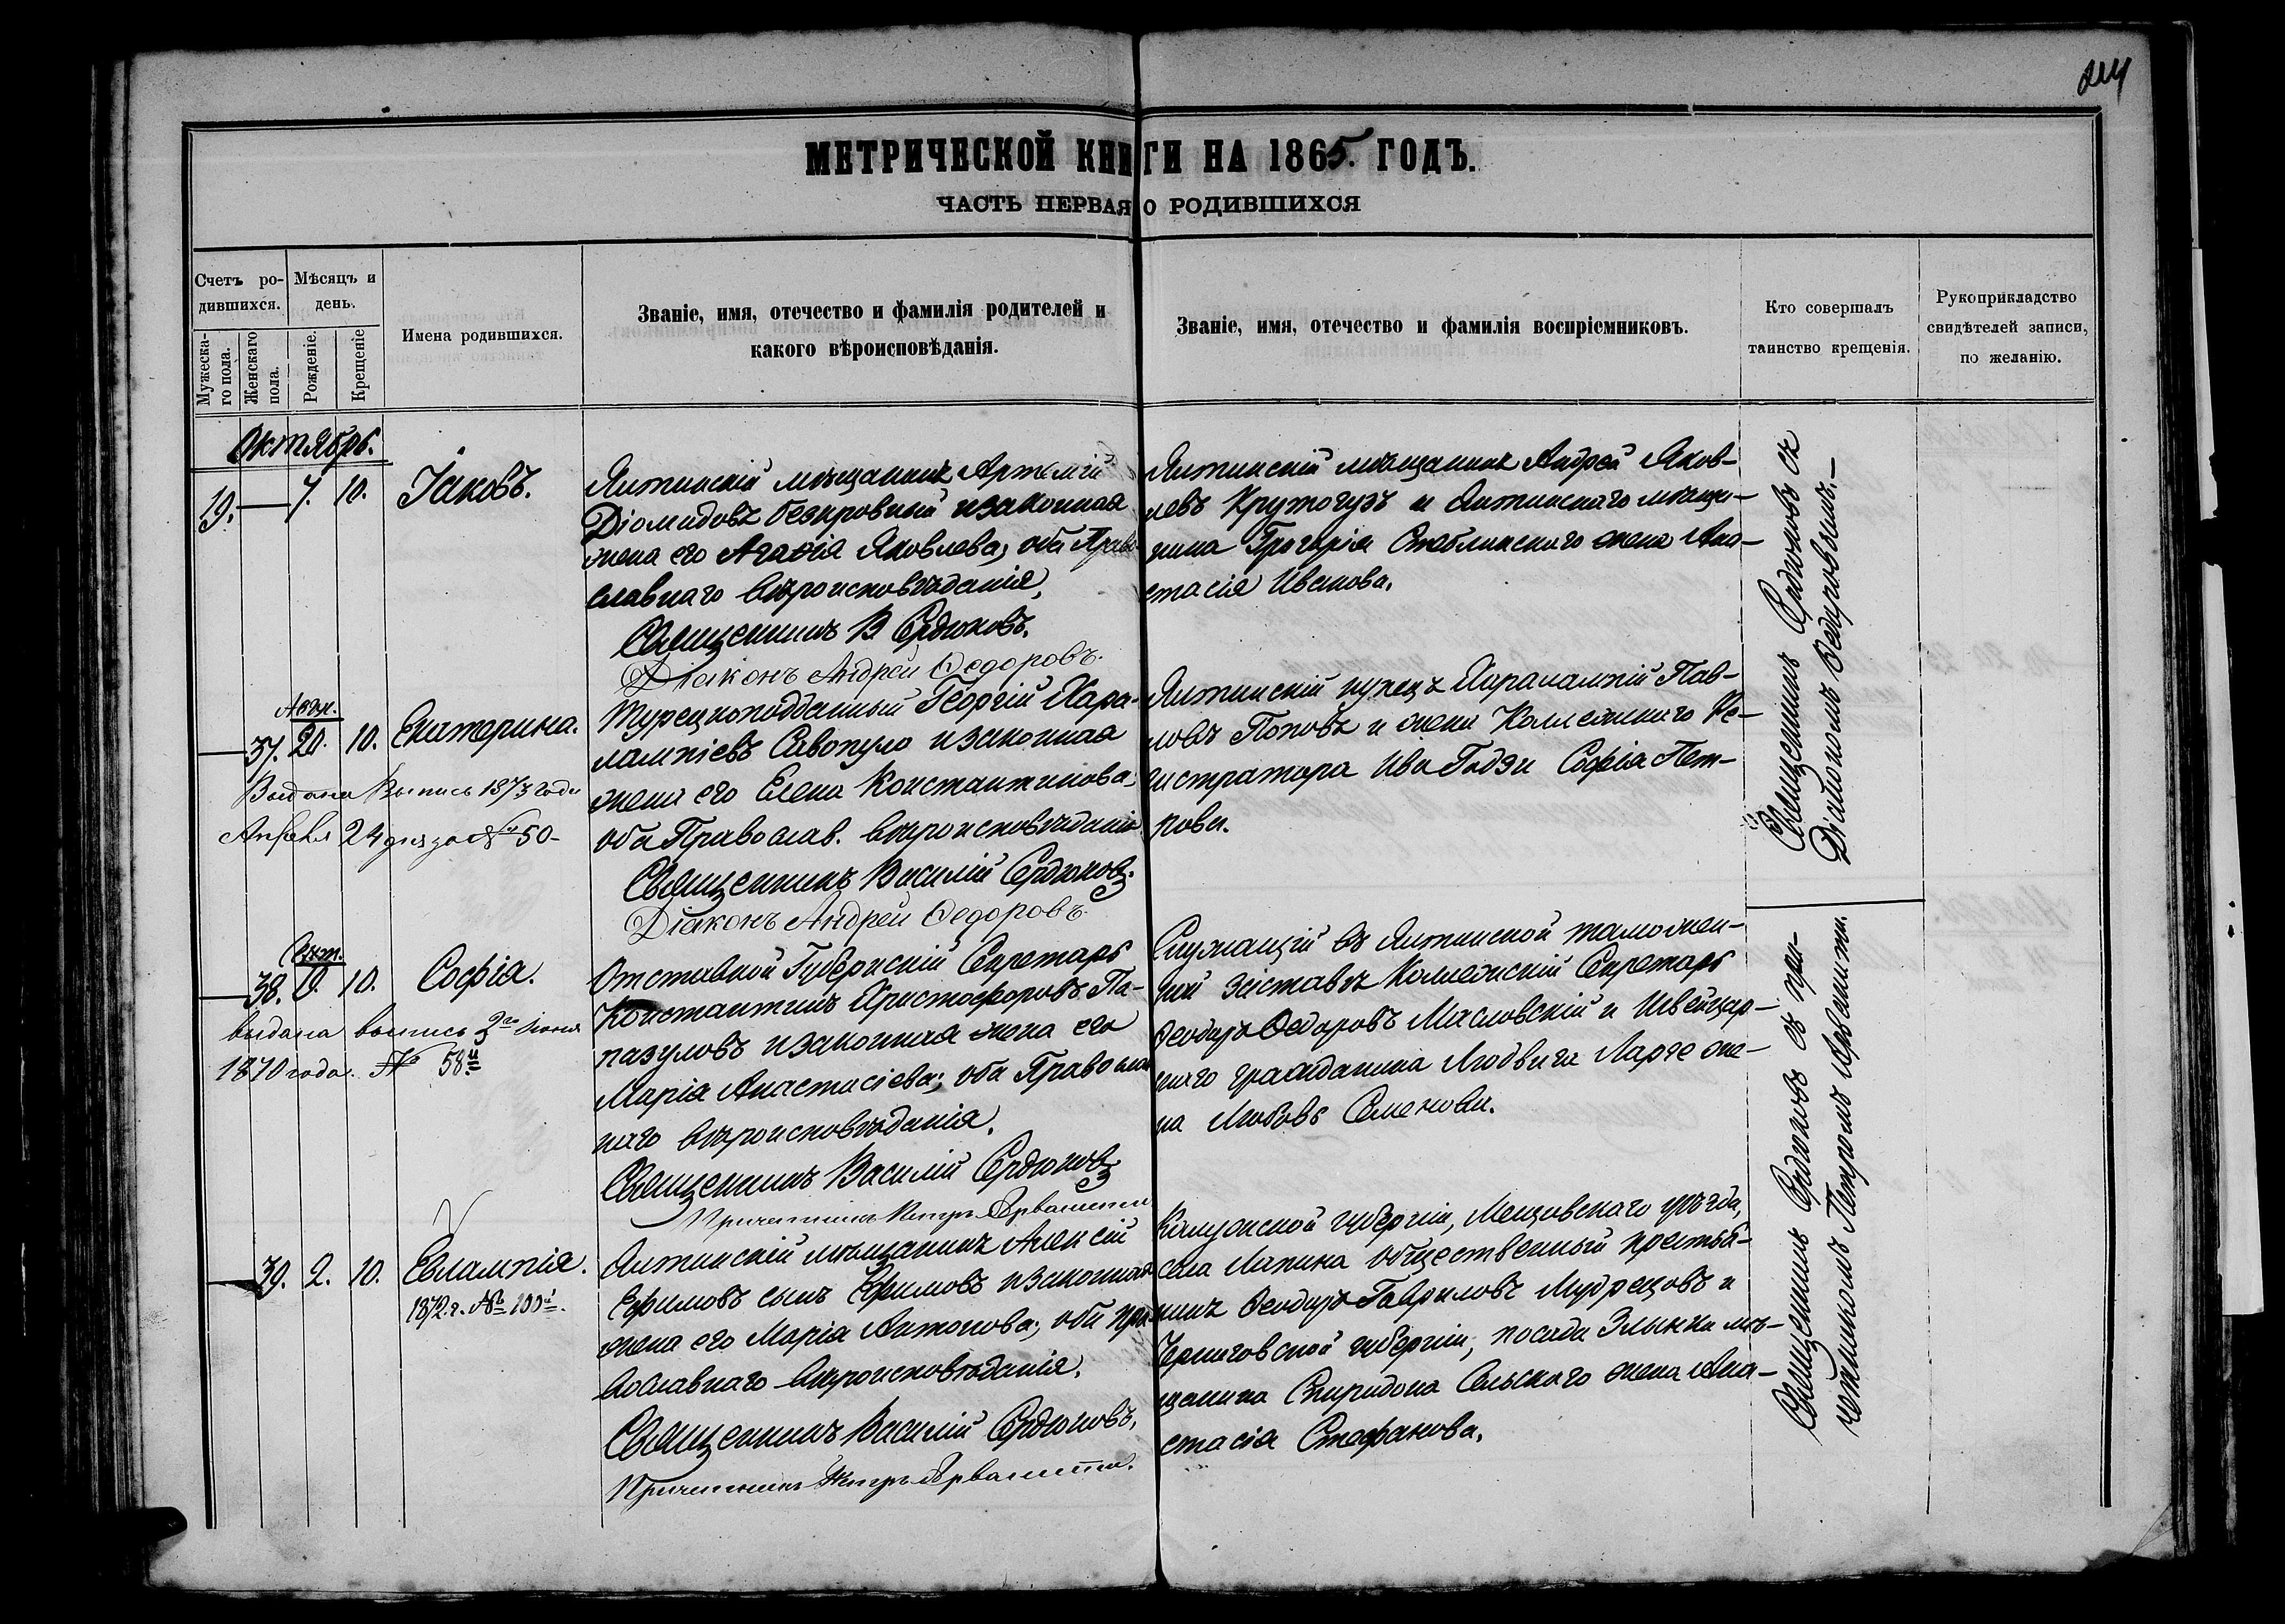 МЕТРИЧЕСКОЙ КНИГИ НА 1865. ГОДЪ.
ЧАСТЬ ПЕРВАЯ О РОДИВШИХСЯ
Счетъ ро-
дившихся.
Мужеска-
го пола.
Женскаго
пола.
Мѣсяцъ и
день.
Рожденіе.
Крещеніе
Имена родившихся.
Званіе, имя, отечество и фамилія родителей и
какого вѣроисповѣданія.
Званіе, имя, отечество и фамилія воспріемниковъ.
Кто совершалъ
таинство крещенія.
Рукоприкладство
свидѣтелей записи,
по желанію.
Октябрь.
19. — 7. 10. Іаковъ.
Ялтинскій мѣщанинъ Артемій
Діомидовъ Безкровный и законная
жена его Агаѳія Яковлева; оба Право
славнаго вѣроисповѣданія,
Священникъ В Сердюковъ.
Діаконъ Андрей Ѳедоровъ.
Ялтинскій мѣщанинъ Андрей Яков-
левъ Крутогузъ и Ялтинскаго мѣща-
нина Григорія Стеблинскаго жена Ана-
стасія Иванова.
Авгу.
— 37. 20. 10. Екатерина.
Выдана Выпись 1873 года
Апреля 24 дня за № 50-
Турецкоподданный Георгій Хара-
лампіевъ Савопуло и законная
жена его Елена Константинова;
оба Православ. вѣроисповѣданія
Священникъ Василій Сердюковъ.
Діаконъ Андрей Ѳедоровъ.
Ялтинскій купецъ Харалампій Пав-
ловъ Поповъ и жена Коллежскаго Ре-
гистратора Ива Годзи Софія Пет-
рова.
Сент.
— 38. 10. Софія.
выдана выпись 2го іюня
1870 года. № 58й
Отставной Губернскій Секретарь
Константинъ Христофоровъ Па-
пазуловъ и законная жена его
Марія Анастасіева; оба Православ
наго вѣроисповѣданія.
Священникъ Василій Сердюковъ
Причетникъ Петръ Арванити
Служащій въ Ялтинской таможен-
ной заставѣ Коллежскій Секретарь
Ѳеодоръ Ѳедоровъ Масловскій и Швейцар-
скаго гражданина Людвига Ларге же-
на Любовь Семенова.
— 39. 2. 10. Евлампія.
1872.г. № 100й.
Ялтинскій мѣщанинъ Алексій
Ефимовъ сынъ Ефимовъ и законная
жена его Марія Антонова; оба пра
вославнаго вѣроисповѣданія.
Священникъ Василій Сердюковъ.
Причетникъ Петръ Арванити.
Калужской губерніи, Мещовскаго уѣзда,
села Лапина общественный крестья-
нинъ Ѳеодоръ Гавриловъ Мудрецовъ и
Черниговской губерніи, посада Злынки мѣ-
щанина Спиридона Сельскаго жена Ана-
стасія Стефанова.
Священникъ Сердюковъ съ
Діакономъ Ѳедоровымъ.—
Священникъ Сердюковъ съ при-
четникомъ Петромъ Арванити.